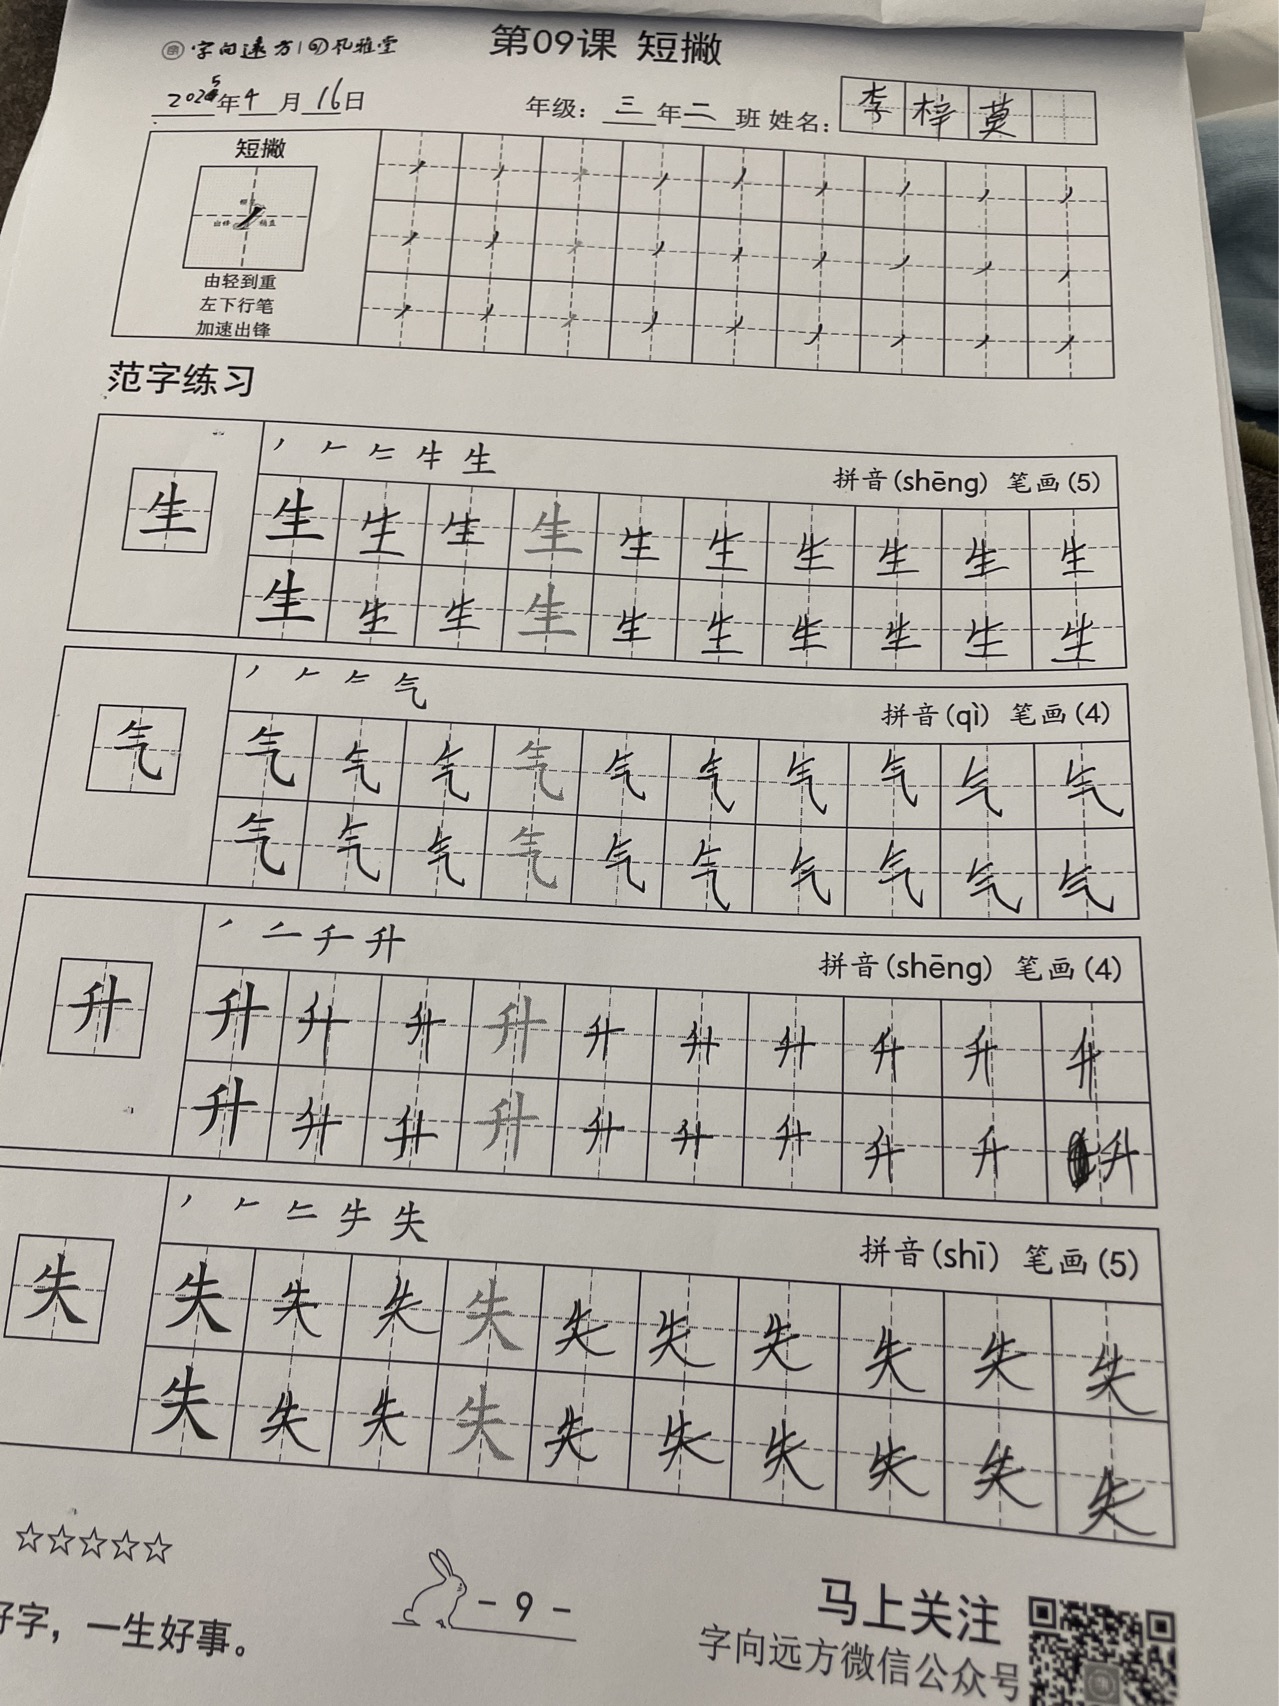 字向远方 | 风雅堂
第09课 短撇
2025年4月16日
年级：三年二班 姓名：李梓萸
短撇
由轻到重
左下行笔
加速出锋
范字练习
生
丿 𠂉 生
拼音(shēng) 笔画(5)
生 生 生 生 生 生 生 生 生 生
生 生 生 生 生 生 生 生 生 生
气
丿 𠂉 气
拼音(qì) 笔画(4)
气 气 气 气 气 气 气 气 气 气
气 气 气 气 气 气 气 气 气 气
升
丿 千 升
拼音(shēng) 笔画(4)
升 升 升 升 升 升 升 升 升 升
升 升 升 升 升 升 升 升 升 升
失
丿 𠂉 失
拼音(shī) 笔画(5)
失 失 失 失 失 失 失 失 失 失
失 失 失 失 失 失 失 失 失 失
☆☆☆☆☆
好字，一生好事。
- 9 -
马上关注
字向远方微信公众号